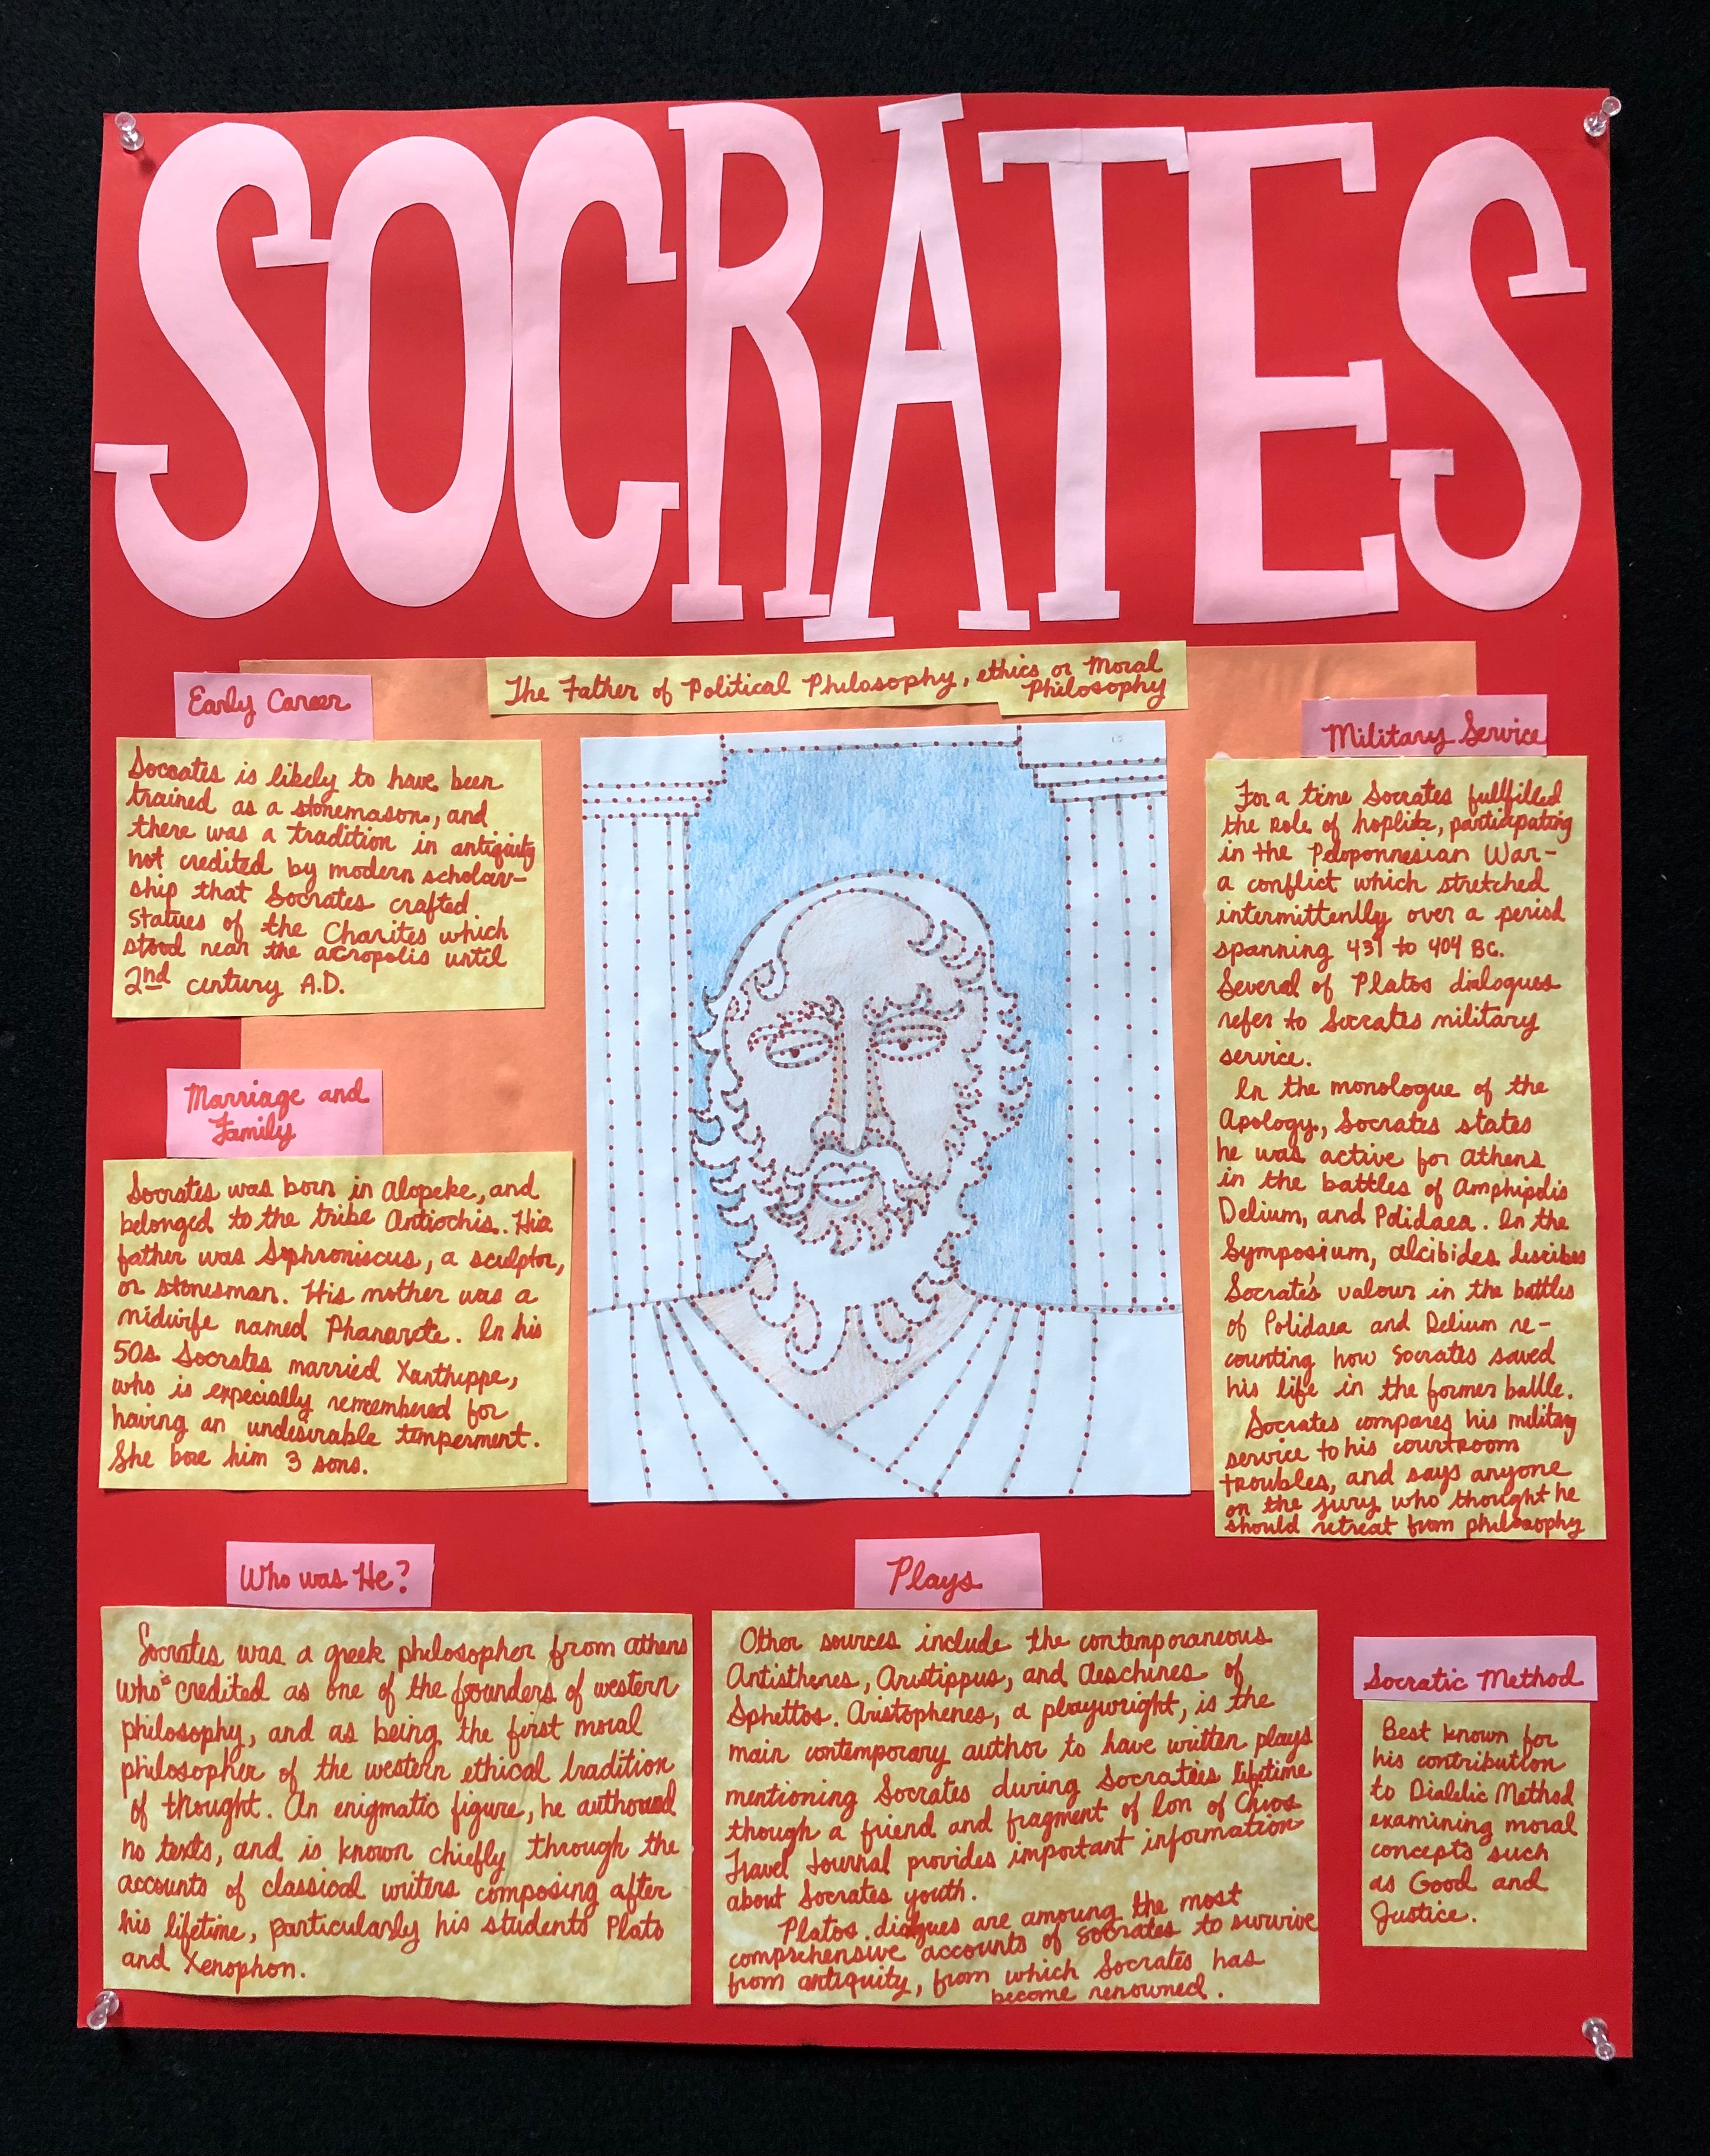 SOCRATES
The Father of Political Philosophy, ethics or Moral
Philosophy
Early Career
Socrates is likely to have been
trained as a stonemason, and
there was a tradition in antiquity
not credited by modern scholar-
ship that Socrates crafted
statues of the Charites which
stood near the acropolis until
2nd century A.D.
Marriage and
Family
Socrates was born in Alopeke, and
belonged to the tribe Antiochis. His
father was Sophroniscus, a sculptor,
or stonesman. His mother was a
midwife named Phanarete. In his
50s Socrates married Xanthippe,
who is expecially remembered for
having an undesirable temperment.
She bore him 3 sons.
Military Service
For a time Socrates fullfilled
the role of hoplite, participating
in the Peloponnesian War-
a conflict which stretched
intermittenlly over a period
spanning 431 to 404 BC.
Several of Platos dialogues
refer to Socrates military
service.
In the monologue of the
Apology, Socrates states
he was active for athens
in the battles of Amphipolis
Delium, and Potidaea. In the
Symposium, alcibides discibes
Socrate's valour in the battles
of Potidaea and Delium re-
counting how Socrates saved
his life in the former battle.
Socrates compares his military
service to his courtroom
troubles, and says anyone
on the jury who thought he
should retreat from philosophy
Who was He?
Socrates was a greek philosopher from athens
who's credited as one of the founders of western
philosophy, and as being the first moral
philosopher of the western ethical tradition
of thought. An enigmatic figure, he authored
no texts, and is known chiefly through the
accounts of classical writers composing after
his lifetime, particularly his students Plato
and Xenophon.
Plays
Other sources include the contemporaneous
Antisthenes, Aristippus, and Aeschines of
Sphettos. Aristophenes, a playwright, is the
main contemporary author to have written plays
mentioning Socrates during Socrates lifetime
though a friend and fragment of Ion of Chios
Travel Journal provides important information
about Socrates youth.
Platos dialgues are amoung the most
comprehensive accounts of Socrates to survive
from antiquity, from which Socrates has
become renowned.
Socratic Method
Best known for
his contribution
to Dialetic Method
examining moral
concepts such
as Good and
Justice.